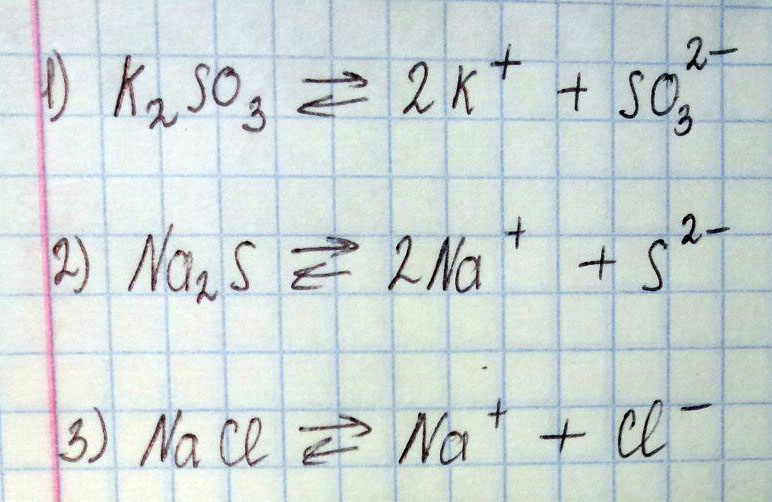 1) K₂SO₃ ⇄ 2K⁺ + SO₃²⁻
2) Na₂S ⇄ 2Na⁺ + S²⁻
3) NaCl ⇄ Na⁺ + Cl⁻